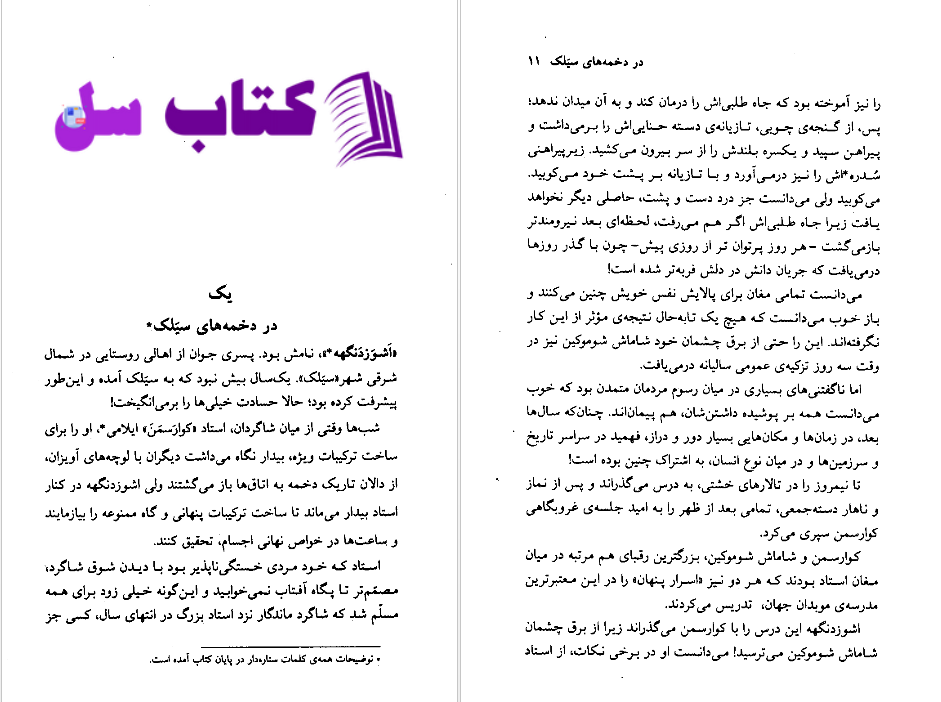 کتاب سل
یک
در دخمه‌های سیَلک*
«اَشوَزدَنگهه*»، نامش بود. پسری جوان از اهالی روستایی در شمال
شرقی شهر«سیَلک». یک‌سال بیش نبود که به سیَلک آمده و این‌طور
پیشرفت کرده بود؛ حالا حسادت خیلی‌ها را برمی‌انگیخت!
شب‌ها وقتی از میان شاگردان، استاد «کوارَسمَنَ» ایلامی*، او را برای
ساخت ترکیبات ویژه، بیدار نگاه می‌داشت دیگران با لوچه‌های آویزان،
از دالان تاریک دخمه به اتاق‌ها باز می‌گشتند ولی اشوزدنگهه در کنار
استاد بیدار می‌ماند تا ساخت ترکیبات پنهانی و گاه ممنوعه را بیازمایند
و ساعت‌ها در خواص نهانی اجسام، تحقیق کنند.
استاد که خود مردی خستگی‌ناپذیر بود با دیدن شوق شاگرد،
مصمّم‌تر تا پگاه آفتاب نمی‌خوابید و این‌گونه خیلی زود برای همه
مسلّم شد که شاگرد ماندگار نزد استاد بزرگ در انتهای سال، کسی جز
* توضیحات همه‌ی کلمات ستاره‌دار در پایان کتاب آمده است.
در دخمه‌های سیَلک ۱۱
را نیز آموخته بود که جاه طلبی‌اش را درمان کند و به آن میدان ندهد؛
پس، از گنجه‌ی چوبی، تازیانه‌ی دسته حنایی‌اش را برمی‌داشت و
پیراهن سپید و یکسره بلندش را از سر بیرون می‌کشید. زیرپیراهنی
سُدره*اش را نیز درمی‌آورد و با تازیانه بر پشت خود می‌کوبید.
می‌کوبید ولی می‌دانست جز درد دست و پشت، حاصلی دیگر نخواهد
یافت زیرا جاه طلبی‌اش اگر هم می‌رفت، لحظه‌ای بعد نیرومندتر
بازمی‌گشت -هر روز پرتوان تر از روزی پیش- چون با گذر روزها
درمی‌یافت که جریان دانش در دلش فربه‌تر شده است!
می‌دانست تمامی مغان برای پالایش نفس خویش چنین می‌کنند و
باز خوب می‌دانست که هیچ یک تابه‌حال نتیجه‌ی مؤثر از این کار
نگرفته‌اند. این را حتی از برق چشمان خود شاماش شوموکین نیز در
وقت سه روز تزکیه‌ی عمومی سالیانه درمی‌یافت.
اما ناگفتنی‌های بسیاری در میان رسوم مردمان متمدن بود که خوب
می‌دانست همه بر پوشیده داشتن‌شان، هم پیمان‌اند. چنان‌که سال‌ها
بعد، در زمان‌ها و مکان‌هایی بسیار دور و دراز، فهمید در سراسر تاریخ
و سرزمین‌ها و در میان نوع انسان، به اشتراک چنین بوده است!
تا نیمروز را در تالارهای خشتی، به درس می‌گذراند و پس از نماز
و ناهار دسته‌جمعی، تمامی بعد از ظهر را به امید جلسه‌ی غروبگاهی
کوارسمن سپری می‌کرد.
کوارسمن و شاماش شوموکین، بزرگترین رقبای هم مرتبه در میان
مغان استاد بودند که هر دو نیز «اسرار پنهان» را در این معتبرترین
مدرسه‌ی موبدان جهان، تدریس می‌کردند.
اشوزدنگهه این درس را با کوارسمن می‌گذراند زیرا از برق چشمان
شاماش شوموکین می‌ترسید! می‌دانست او در برخی نکات، از استاد